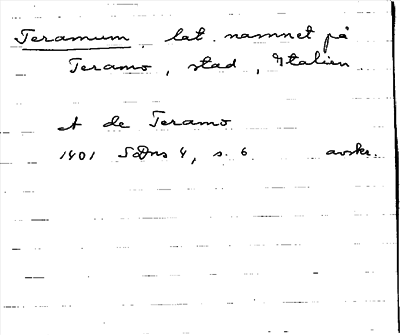 Teramum lat. namnet på
Teramo, stad, Italien
A de Teramo
1401 SDns 4, s. 6 avskr.